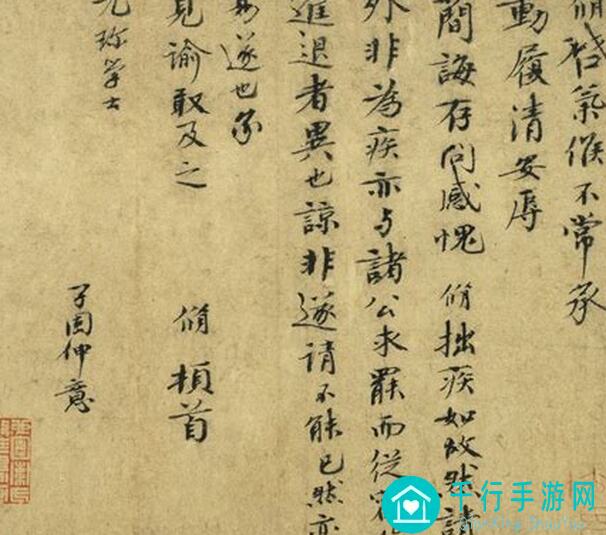 脩啓氣候不常承
動履清安辱
簡誨存問感愧 脩拙疾如故然請
外非為疾亦与諸公求罷而從容
進退者異也諒非遂請不能已然亦
易遂也承
見諭取及之 脩 頓首
元珍學士
子固仲意
平行手游网